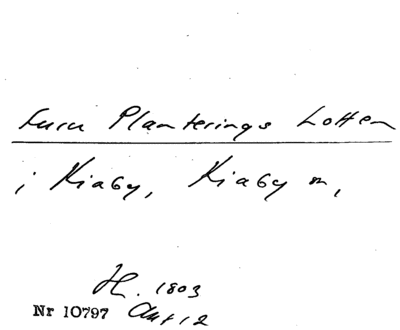 Furu Planterings Lotten
i Kiaby, Kiaby sn,
H. 1803
Nr 10797 Akt 12